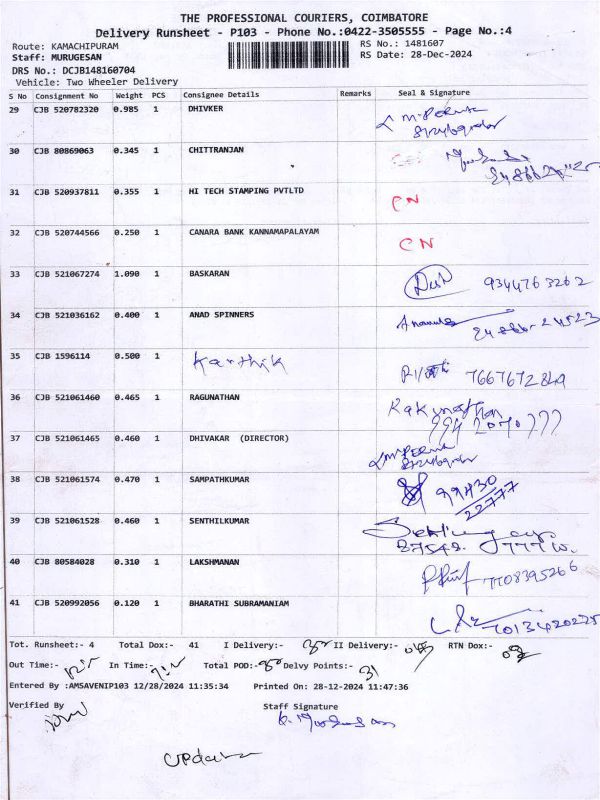 THE PROFESSIONAL COURIERS, COIMBATORE
Delivery Runsheet - P103 - Phone No.:0422-3505555 - Page No.:4
Route: KAMACHIPURAM RS No.: 1481607
Staff: MURUGESAN RS Date: 28-Dec-2024
DRS No.: DCJB148160704
Vehicle: Two Wheeler Delivery
S No Consignment No Weight PCS Consignee Details Remarks Seal & Signature
29 CJB 520782320 0.985 1 DHIVKER
30 CJB 80869063 0.345 1 CHITTRANJAN
31 CJB 520937811 0.355 1 HI TECH STAMPING PVTLTD CN
32 CJB 520744566 0.250 1 CANARA BANK KANNAMAPALAYAM CN
33 CJB 521067274 1.090 1 BASKARAN 9344763262
34 CJB 521036162 0.400 1 ANAD SPINNERS
35 CJB 1596114 0.500 1 Karthik
36 CJB 521061460 0.465 1 RAGUNATHAN
37 CJB 521061465 0.460 1 DHIVAKAR (DIRECTOR)
38 CJB 521061574 0.470 1 SAMPATHKUMAR 99430
22777
39 CJB 521061528 0.460 1 SENTHILKUMAR
40 CJB 80584028 0.310 1 LAKSHMANAN 7708395266
41 CJB 520992056 0.120 1 BHARATHI SUBRAMANIAM
Tot. Runsheet:- 4 Total Dox:- 41 I Delivery:- II Delivery:- RTN Dox:-
Out Time:- In Time:- Total POD:- Delvy Points:- 31
Entered By :AMSAVENIP103 12/28/2024 11:35:34 Printed On: 28-12-2024 11:47:36
Verified By Staff Signature